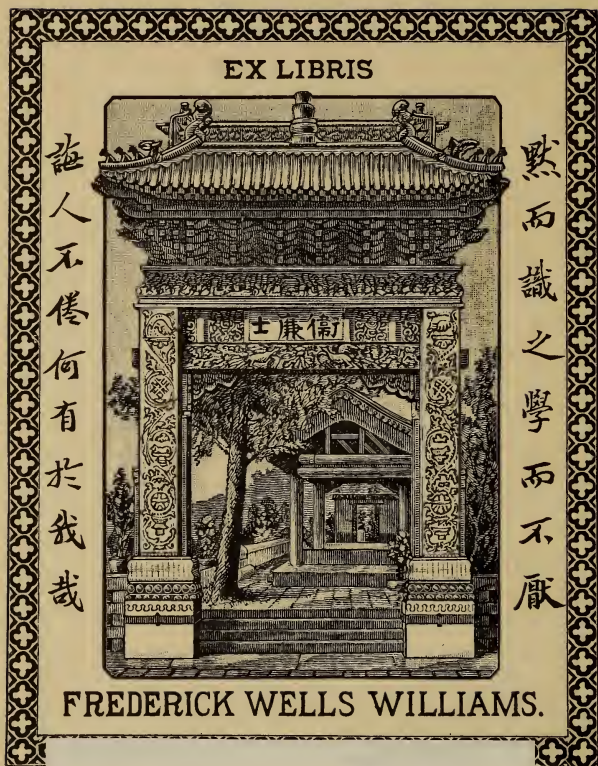 EX LIBRIS
默而識之學而不厭
誨人不倦何有於我哉
士廉衛
FREDERICK WELLS WILLIAMS.